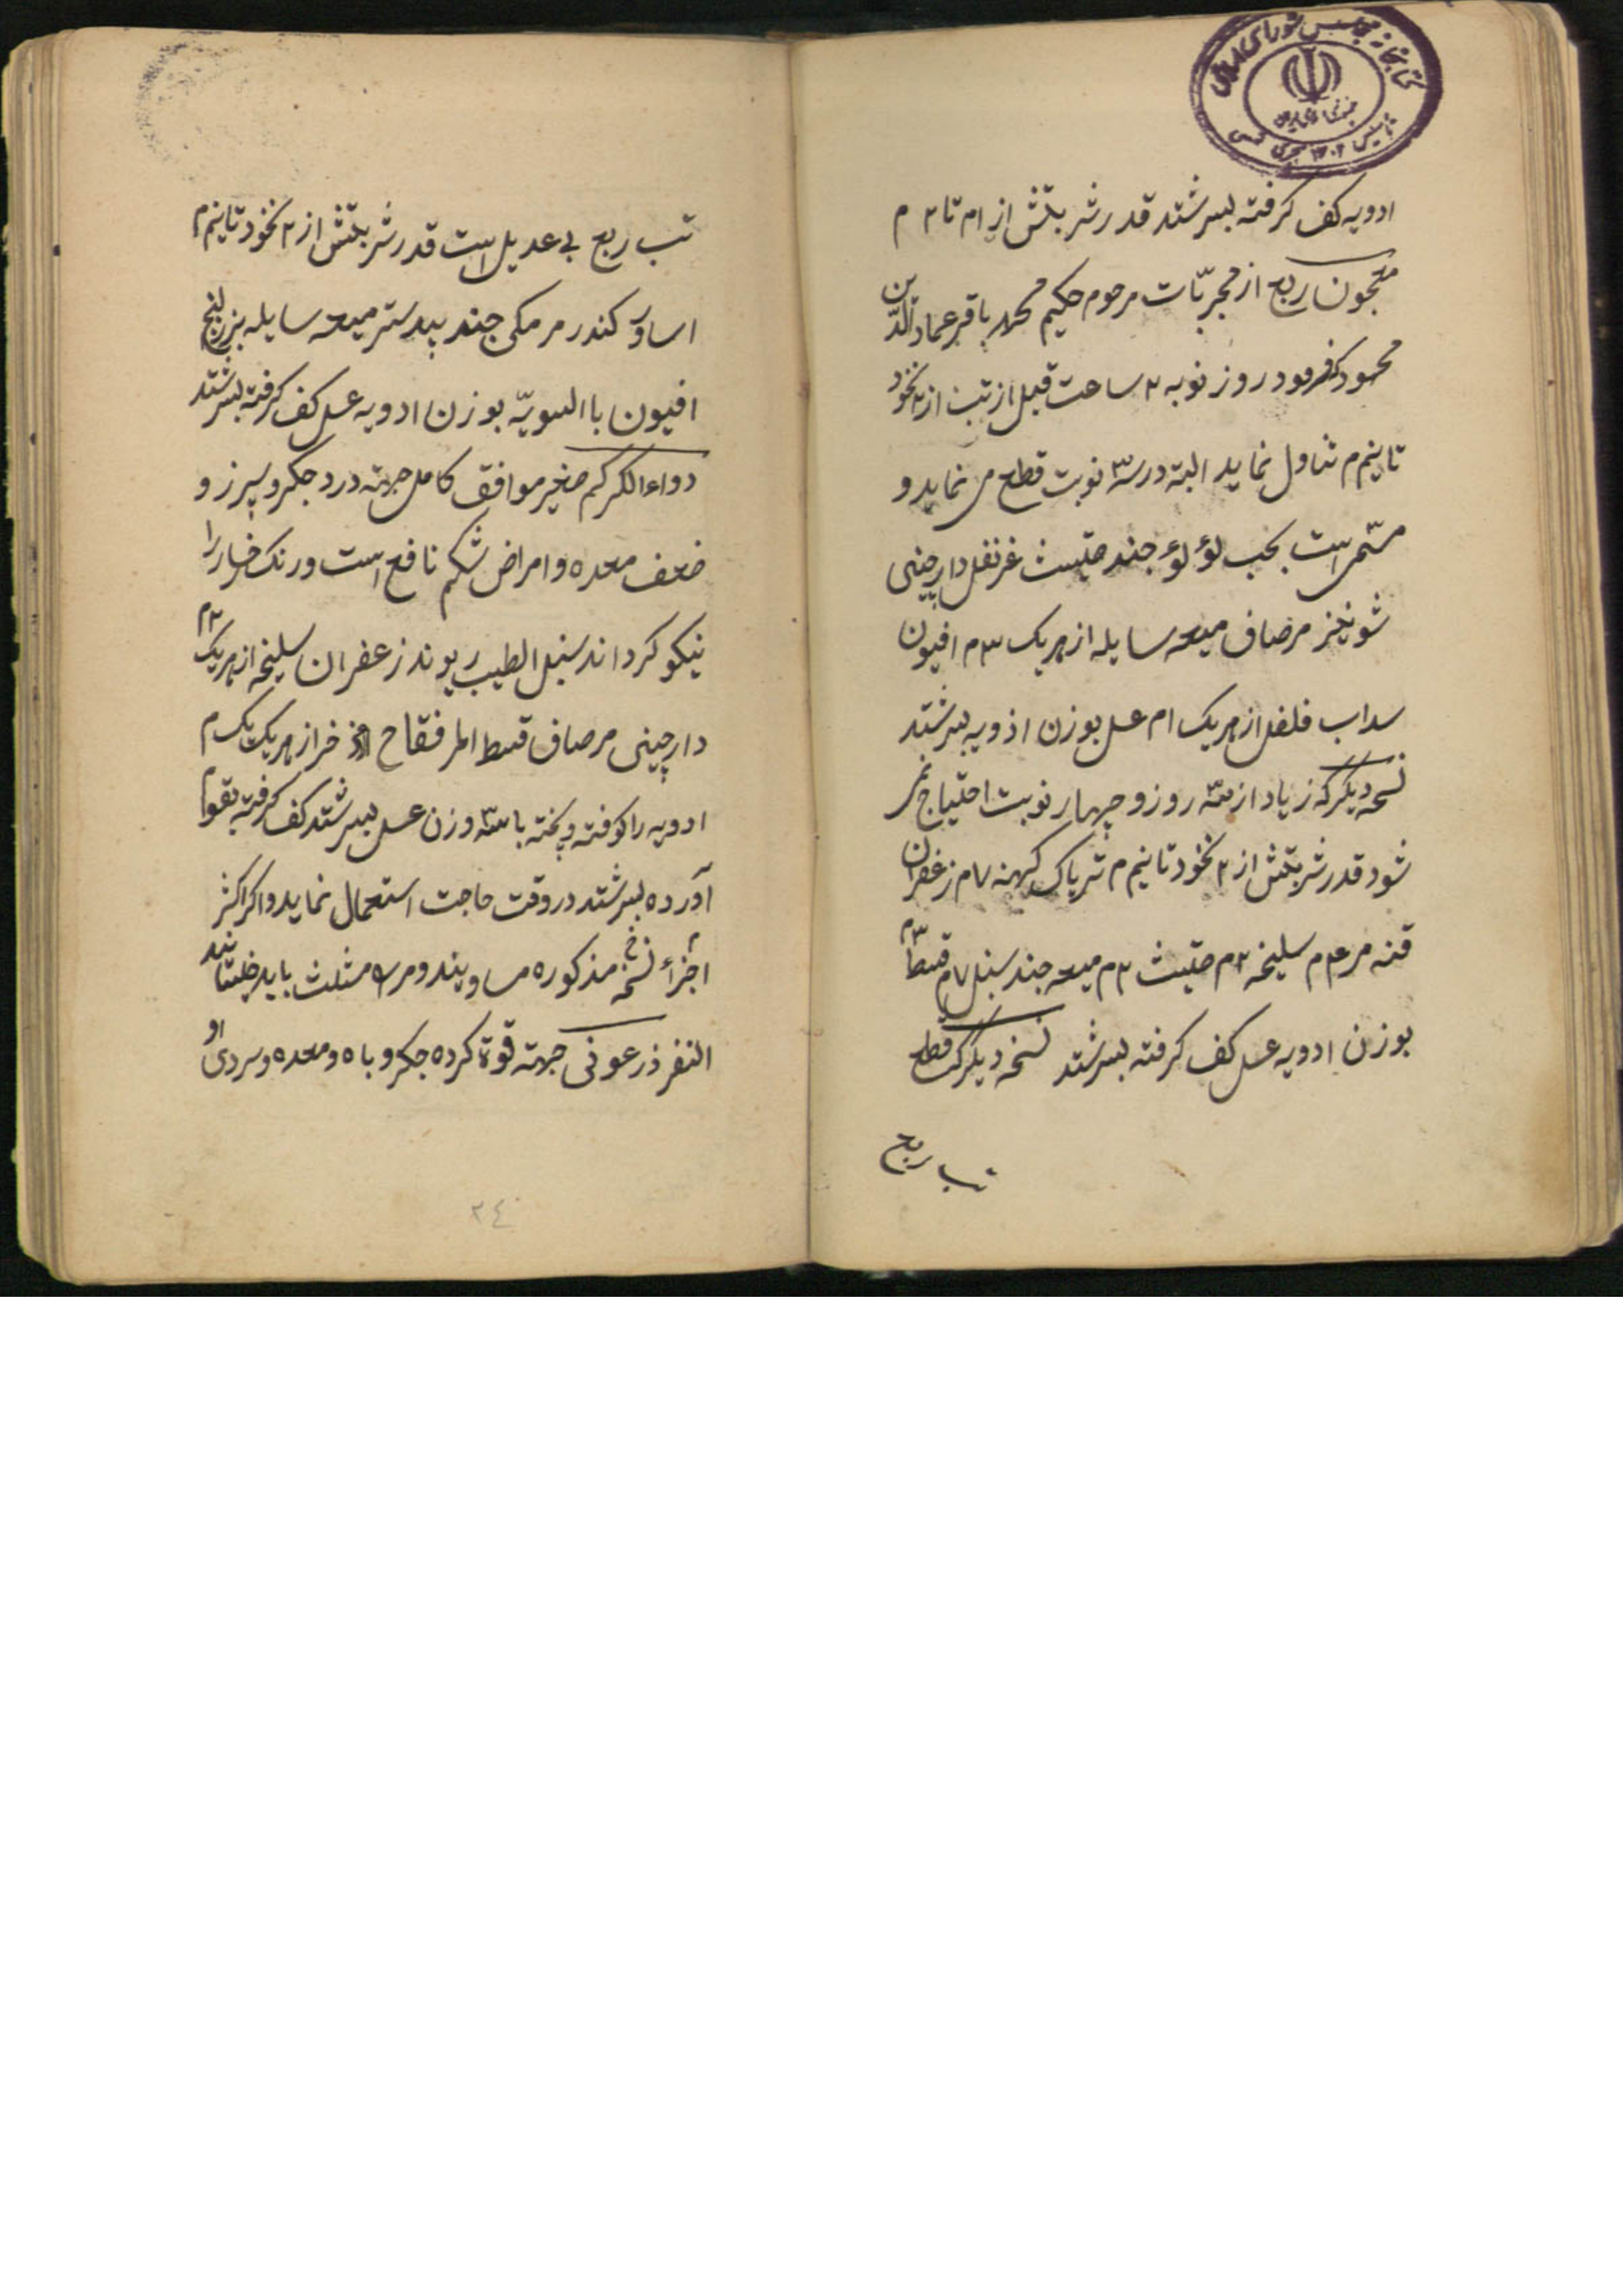 کتابخانه مجلس شورای اسلامی
ادویه کف کرفته بسرشتد قدر شربتش از ام تا ۲ م
معجون ربع از مجربّات مرحوم حکیم محمد باقر عماد الدّین
محمود که فرمود روز نوبه ۲ ساعت قبل از تب از نخود
تا نیم م تناول نماید البته در سه نوبت قطع می نماید و
مسمی است بحب لؤلؤ جند حلتیت غرنفل دارچینی
شونیز مرصاف میعه سایله از هریک ۳م افیون
سداب فلفل از هریک ام عسل بوزن ادویه بسرشتد
نسخه دیکر که زیاد از سه روز و چهار نوبت احتیاج نمی
شود قدر شربتش از ۲ نخود تا نیم م تریاک کهنه ۷م زعفران
قنه مر ۴م سلیخه ۲م حلتیت ۲م میعه جند سنبل ۷م قسط ۳م
بوزن ادویه عسل کف کرفته بسرشتد نسخه دیکر که قطع
تب ربع
تب ربع بی عدیل است قدر شربتش از ۲ نخود تا نیم م
اسارو کندر مرمکی جند بیدستر میعه سایله بزرلبنج
افیون باالسویّه بوزن ادویه عسل کف کرفته بسرشتد
دواءالکرکم صغیر موافق کامل جهته درد جکر و سپرز و
ضعف معده و امراض شکم نافع است و رنک رخسار را
نیکو کرداند سنبل الطیب ریوند زعفران سلیخه از هریک ۲م
دارچینی مرصاف قسط المر فقاح اذخر از هریک یک م
ادویه را کوفته و پخته با سه وزن عسل بسرشتد کف کرفته بقوام
آورده بسرشتد در وقت حاجت استعمال نماید و اکر اکثر
اجزاء نسخه مذکوره مساویند و مر را مثلث باید خلتانید
النفر ذرعونی جهته قوة کرده جکر و باه و معده و سردی او
۲٤